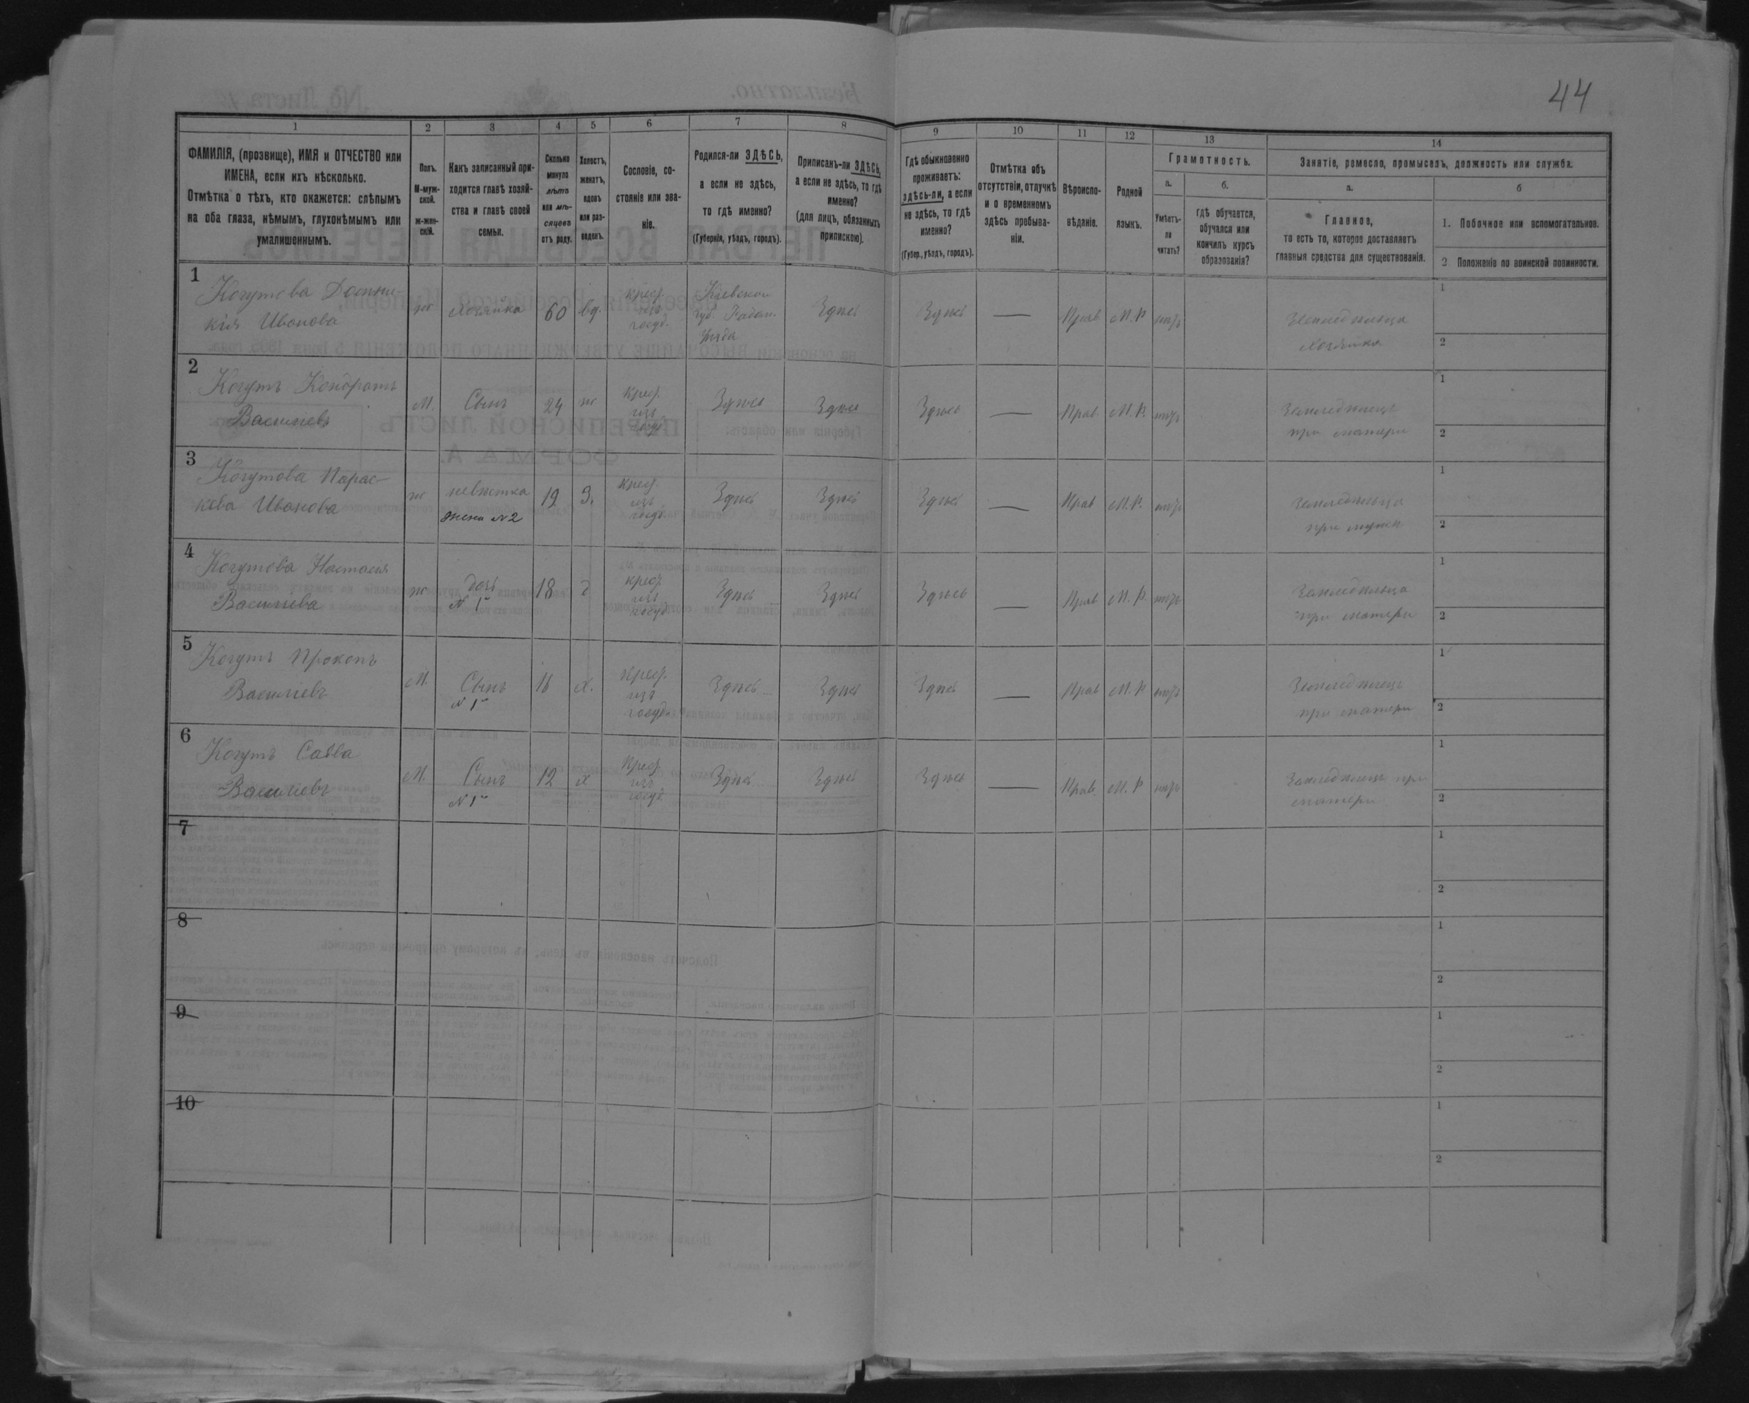 44
1 2 3 4 5 6 7 8 9 10 11 12 13 14
ФАМИЛІЯ, (прозвище), ИМЯ и ОТЧЕСТВО или
ИМЕНА, если ихъ нѣсколько.
Отмѣтка о тѣхъ, кто окажется: слѣпымъ
на оба глаза, нѣмымъ, глухонѣмымъ или
умалишеннымъ.
Полъ.
М-муж-
ской.
ж-жен-
скій.
Какъ записанный при-
ходится главѣ хозяй-
ства и главѣ своей
семьи.
Сколько
минуло
лѣтъ
или мѣ-
сяцевъ
отъ роду.
Холостъ,
женатъ,
вдовъ
или раз-
веденъ.
Сословіе, со-
стояніе или зва-
ніе.
Родился-ли ЗДѢСЬ,
а если не здѣсь,
то гдѣ именно?
(Губернія, уѣздъ, городъ).
Приписанъ-ли ЗДѢСЬ,
а если не здѣсь, то гдѣ
именно?
(для лицъ, обязанныхъ
припискою).
Гдѣ обыкновенно
проживаетъ:
здѣсь-ли, а если
не здѣсь, то гдѣ
именно?
(Губер., уѣздъ, городъ).
Отмѣтка объ
отсутствіи, отлучкѣ
и о временномъ
здѣсь пребыва-
ніи.
Вѣроиспо-
вѣданіе.
Родной
языкъ.
Грамотность.
а.
Умѣетъ-
ли
читать?
б.
гдѣ обучается,
обучался или
кончилъ курсъ
образованія?
Занятіе, ремесло, промыселъ, должность или служба.
а.
Главное,
то есть то, которое доставляетъ
главныя средства для существованія.
б
1. Побочное или вспомогательное.
2. Положеніе по воинской повинности.
1
Когутова
кія Иванова
ж Хозяйка 60 вд. крест. изъ госуд. Кіевской губ. Уѣзда Здѣсь Здѣсь — Прав М.Р нѣтъ Хозяйка 1 2
2
Когутъ Кондратъ
Васильевъ
М. Сынъ 24 ж крест. изъ госуд. Здѣсь Здѣсь Здѣсь — Прав М.Р. нѣтъ Земледѣлецъ при матери 1 2
3
Когутова Парас-
кева Иванова
ж невѣстка жена №2 19 З. Крест. изъ госуд. Здѣсь Здѣсь Здѣсь — Прав М.Р. нѣтъ при мужѣ 1 2
4
Когутова Настасія
Васильева
ж дочь №1 18 крест. изъ госуд. Здѣсь Здѣсь Здѣсь — Прав М.Р нѣтъ при матери 1 2
5
Когутъ Прокопъ
Васильевъ
М. Сынъ №1 х. Крест. изъ госуд. Здѣсь Здѣсь Здѣсь — Прав М.Р нѣтъ Земледѣлецъ при матери 1 2
6
Когутъ Савва
Васильевъ
М. Сынъ №1 12 х Крест. изъ госуд. Здѣсь Здѣсь Здѣсь — Прав. М.Р нѣтъ Земледѣлецъ при матери 1 2
7 1 2
8 1 2
9 1 2
10 1 2